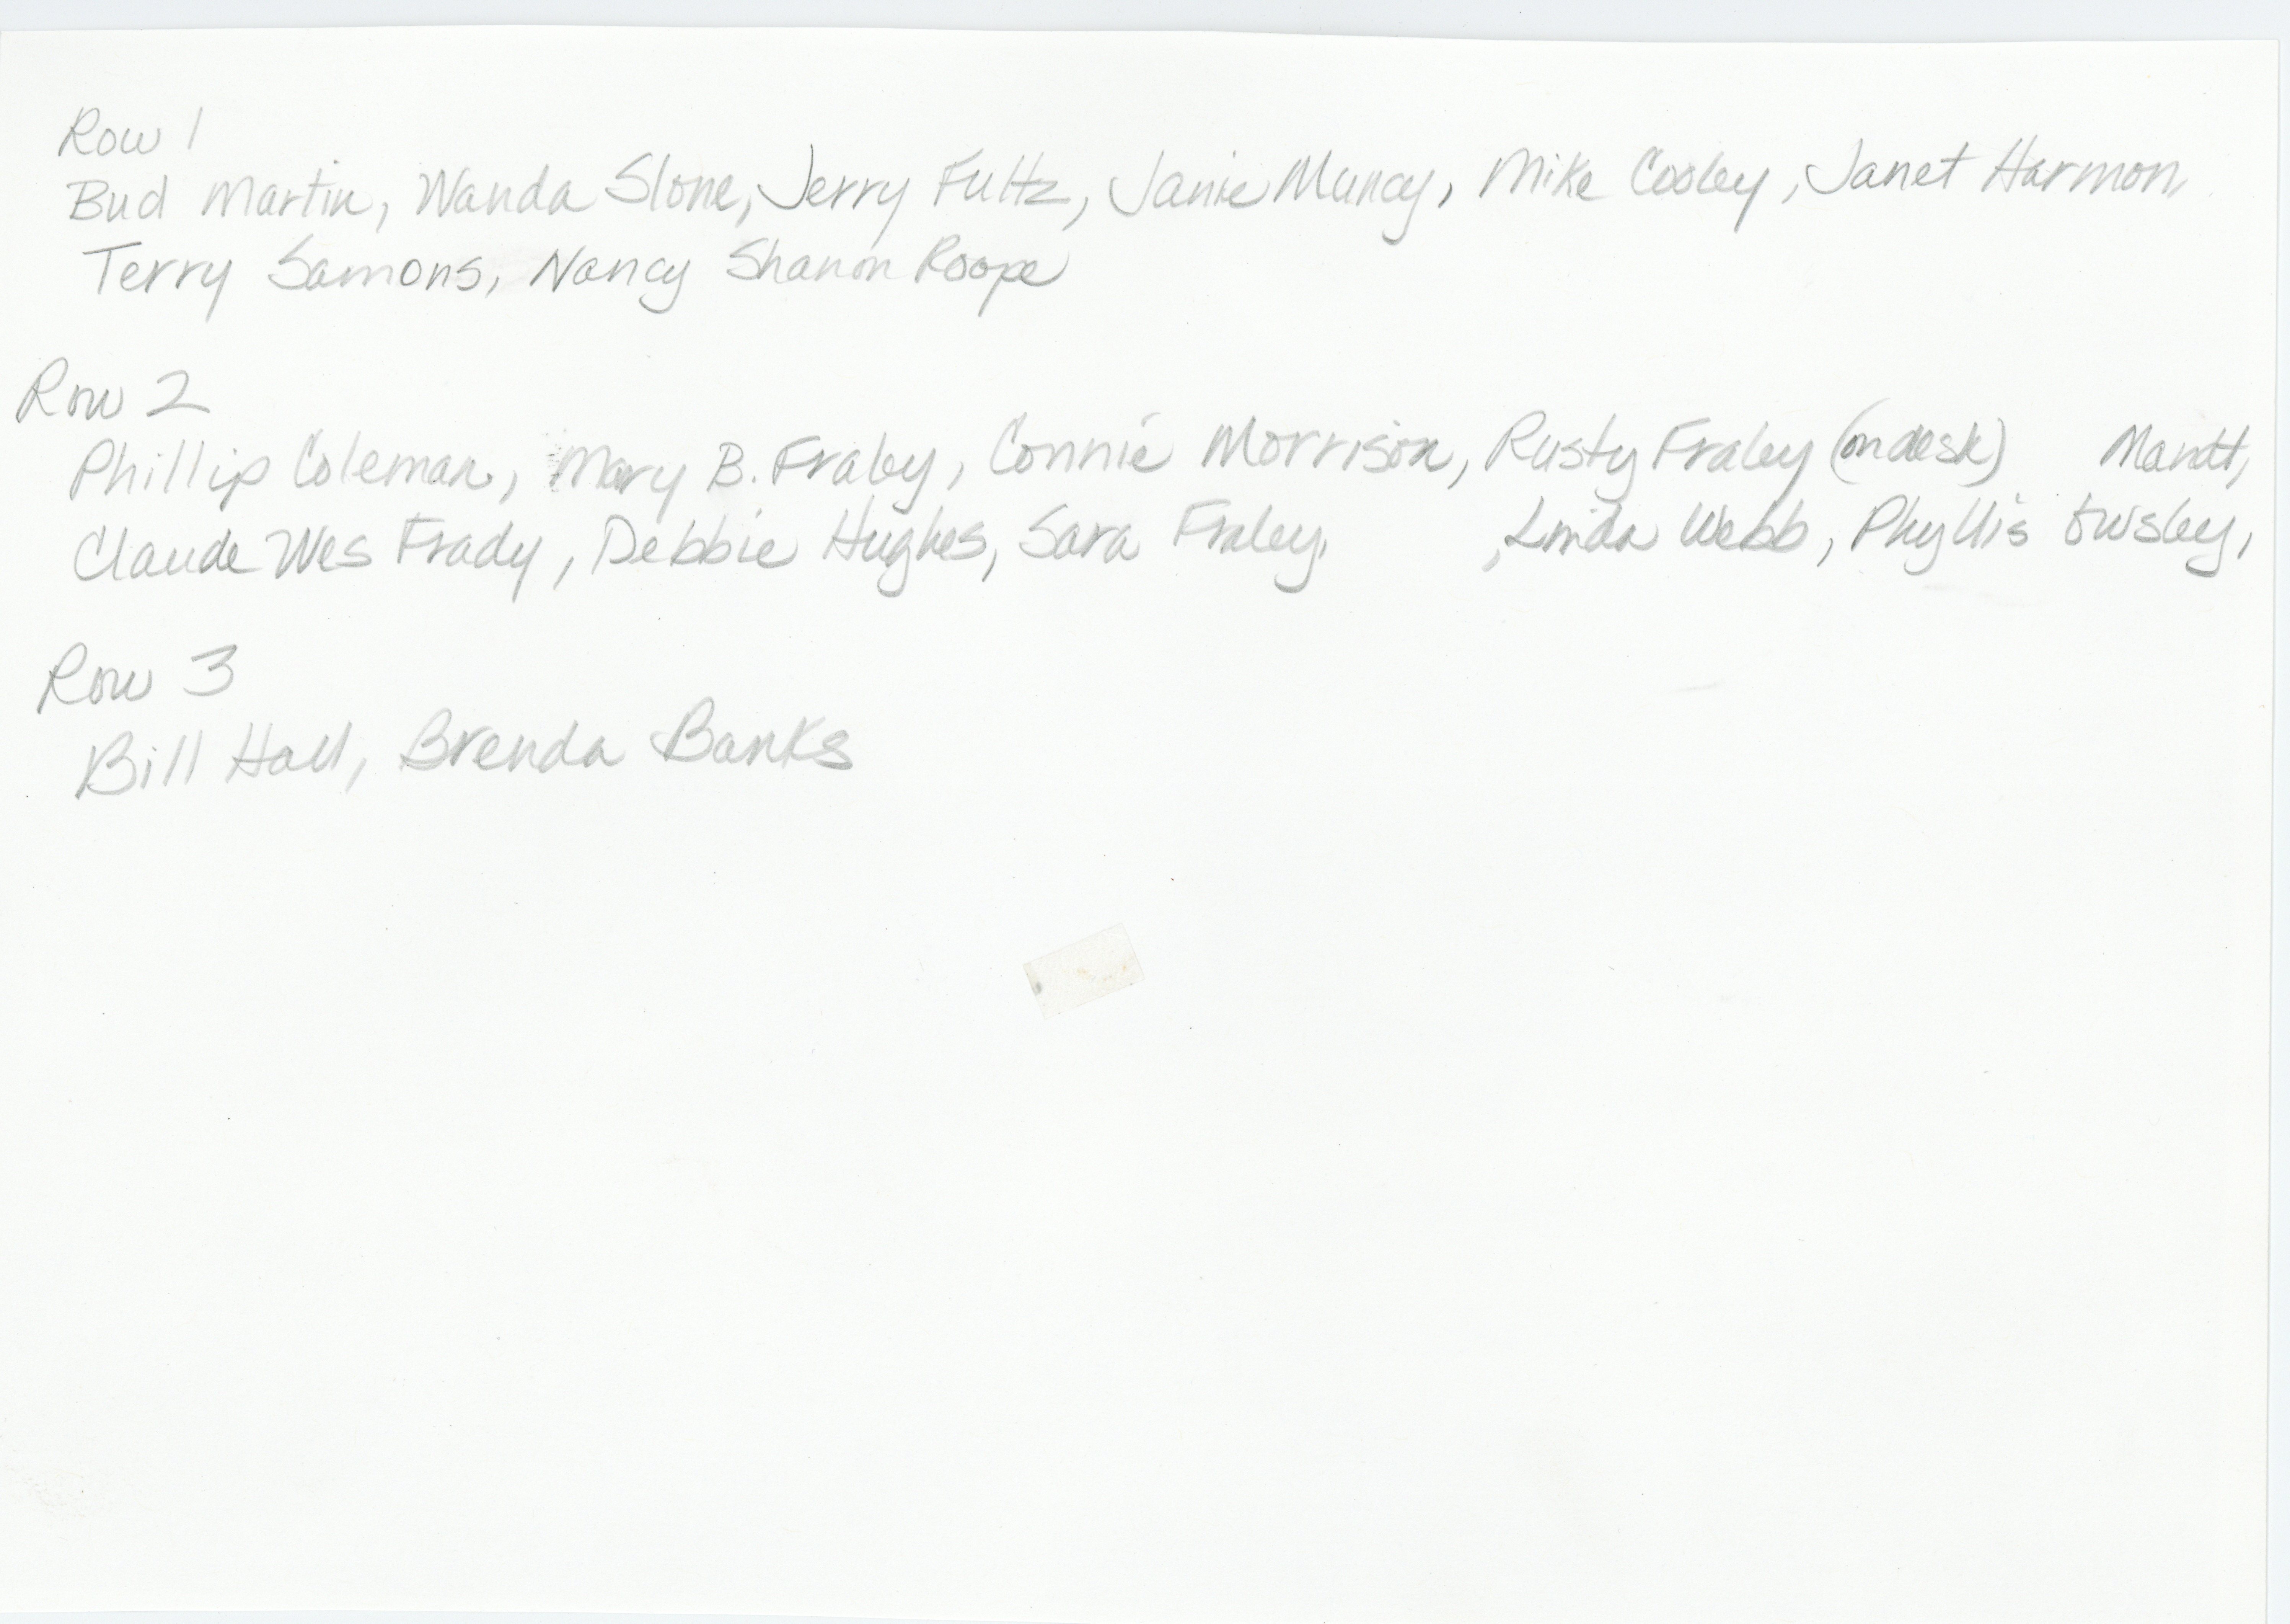 Row 1
Bud Martin, Wanda Slone, Jerry Fultz, Janie Muncy, Mike Cooley, Janet Harmon,
Terry Samons, Nancy Sharon Roope
Row 2
Phillip Coleman, Mary B. Fraley, Connie Morrison, Rusty Fraley (on desk) Mandt,
Claude Wes Frady, Debbie Hughes, Sara Fraley, , Linda Webb, Phyllis Owsley,
Row 3
Bill Hall, Brenda Banks